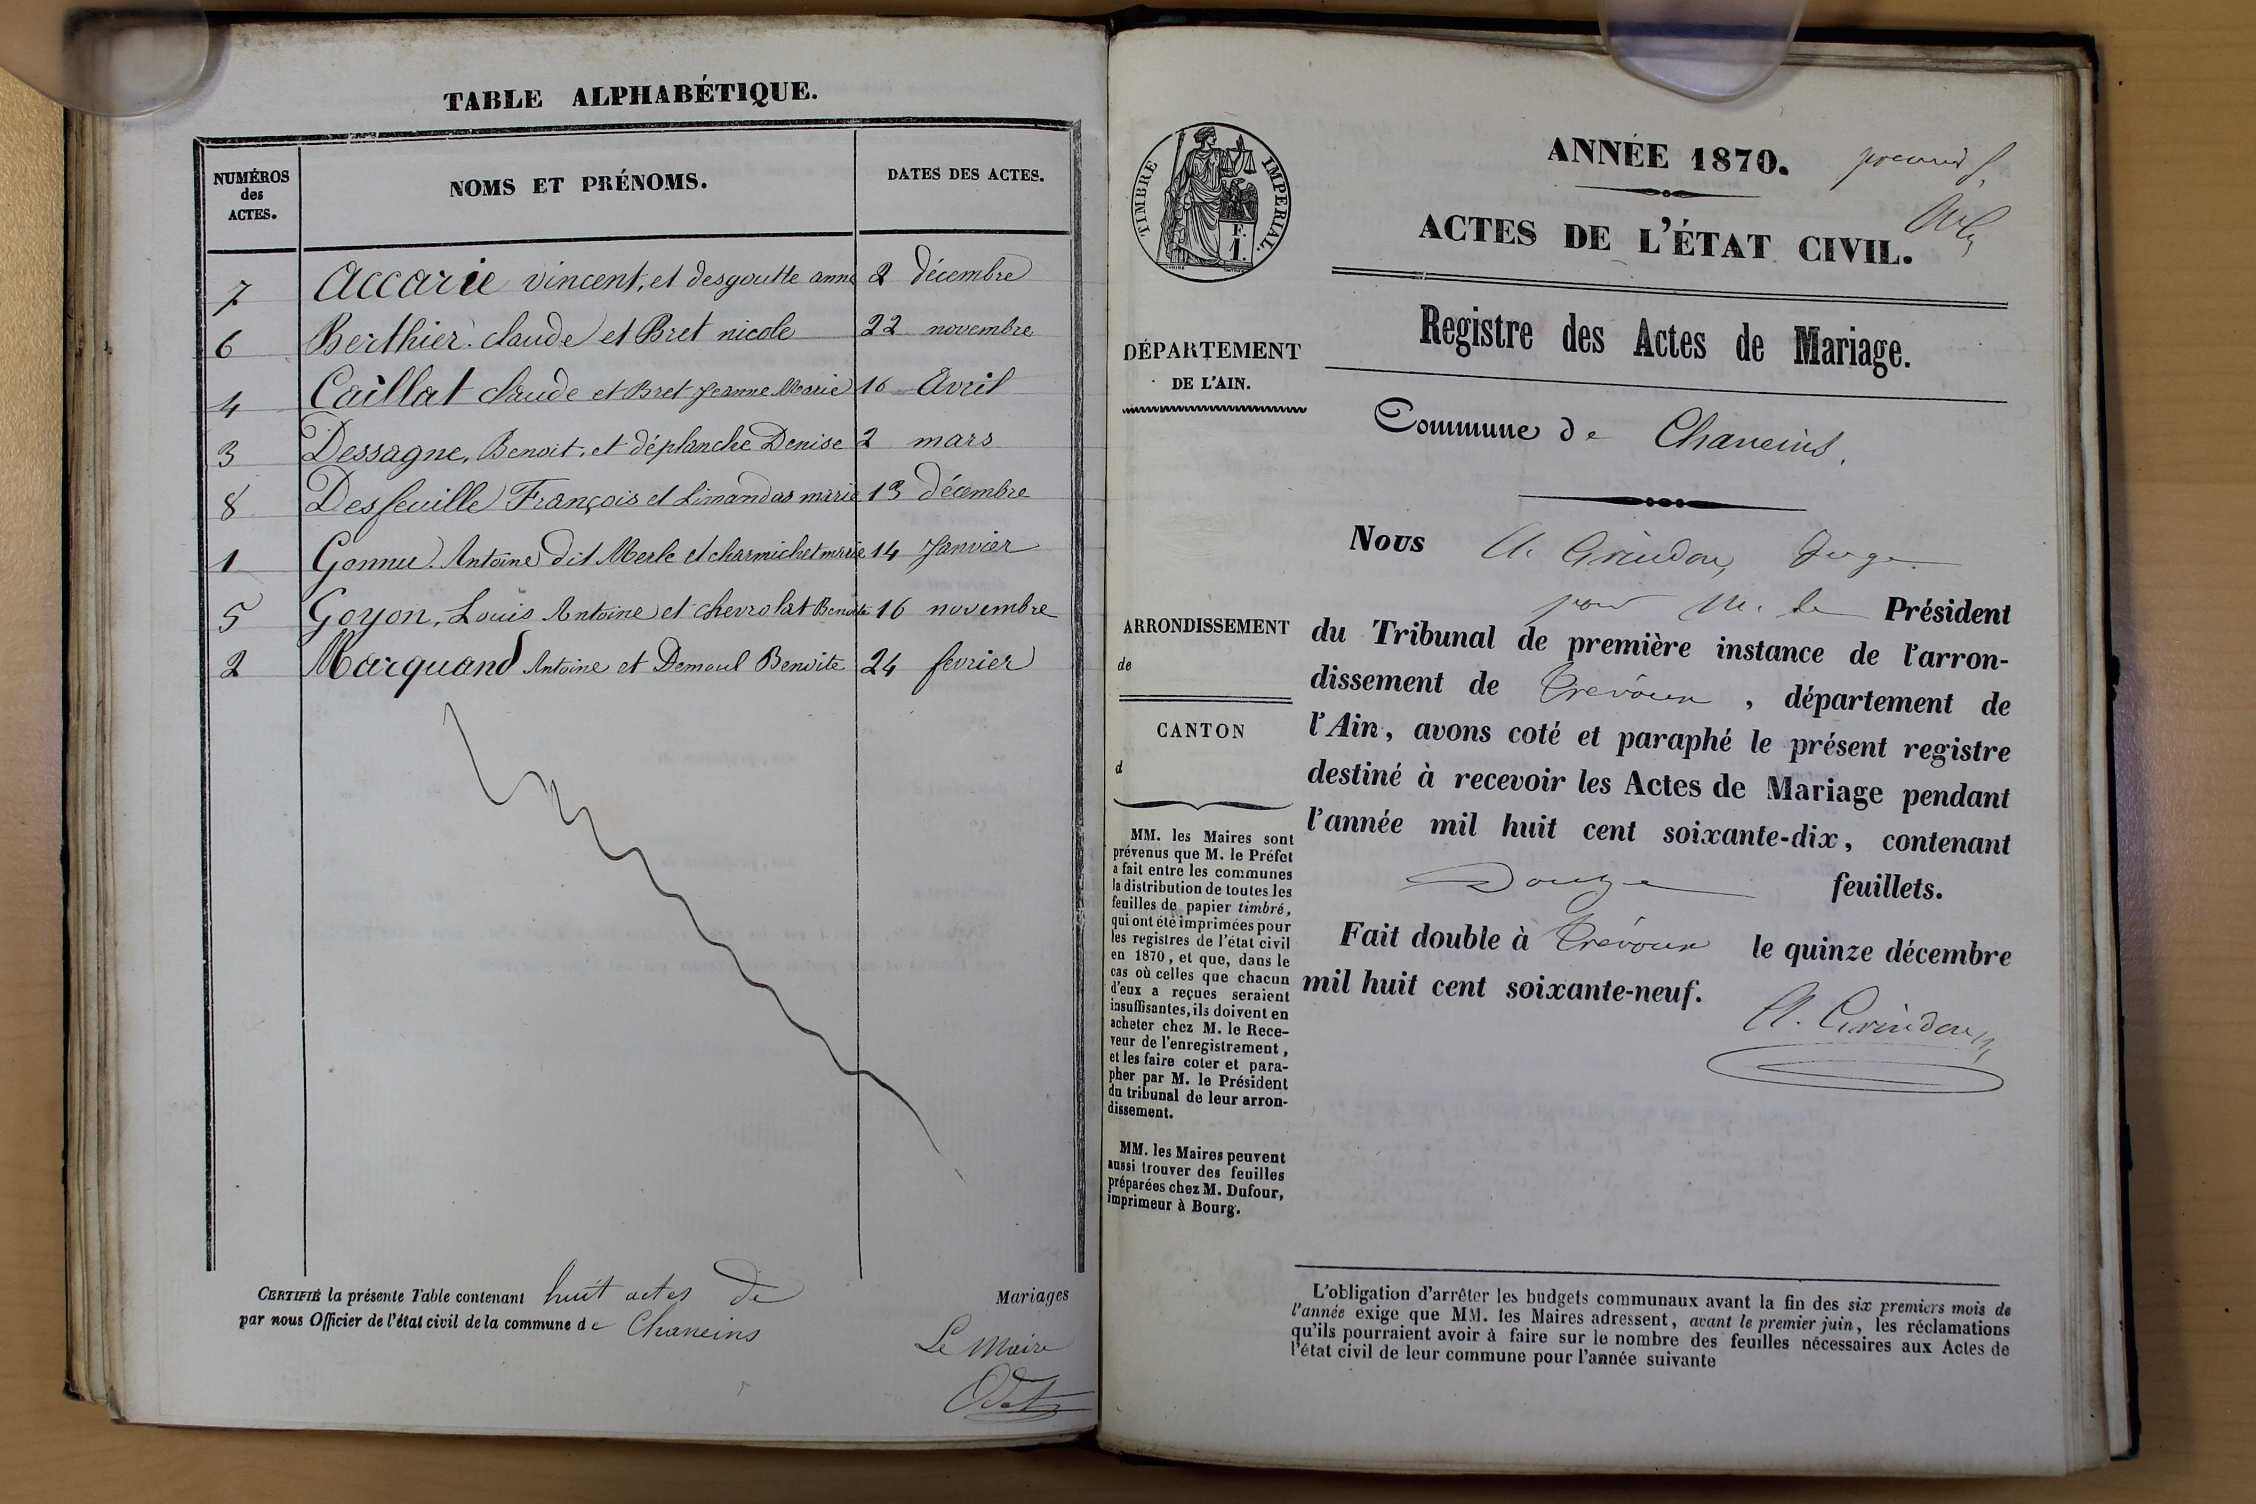 TABLE ALPHABÉTIQUE.
NUMÉROS des ACTES.
NOMS ET PRÉNOMS.
DATES DES ACTES.
7 Accarie vincent, et desgoutte anne 2 décembre
6 Berthier claude et Bret nicole 22 novembre
4 Caillat claude et Bret Jeanne Marie 16 Avril
3 Dessagne, Benoit, et déplanche Denise 2 mars
8 Desfeuille François et Limandas marie 13 décembre
1 Gonnu Antoine dit Merle et charmichet marie 14 Janvier
5 Goyon, Louis Antoine et chevrolat Benoite 16 novembre
2 Marquand Antoine et Demoul Benoite 24 fevrier
CERTIFIÉ la présente Table contenant huit actes de Mariages
par nous Officier de l'état civil de la commune de Chaneins
Le Maire
Odet
TIMBRE IMPERIAL.
F.
1.
ANNÉE 1870.
ACTES DE L'ÉTAT CIVIL.
Registre des Actes de Mariage.
DÉPARTEMENT
DE L'AIN.
Commune de Chaneins.
ARRONDISSEMENT
de
CANTON
d
MM. les Maires sont
prévenus que M. le Préfet
a fait entre les communes
la distribution de toutes les
feuilles de papier timbré,
qui ont été imprimées pour
les registres de l'état civil
en 1870, et que, dans le
cas où celles que chacun
d'eux a reçues seraient
insuffisantes, ils doivent en
acheter chez M. le Rece-
veur de l'enregistrement,
et les faire coter et para-
pher par M. le Président
du tribunal de leur arron-
dissement.
MM. les Maires peuvent
aussi trouver des feuilles
préparées chez M. Dufour,
imprimeur à Bourg.
Nous A. Grindon, Juge
pour M. le Président
du Tribunal de première instance de l'arron-
dissement de Trévoux, département de
l'Ain, avons coté et paraphé le présent registre
destiné à recevoir les Actes de Mariage pendant
l'année mil huit cent soixante-dix, contenant
Douze feuillets.
Fait double à Trévoux le quinze décembre
mil huit cent soixante-neuf.
A. Grindon
L'obligation d'arrêter les budgets communaux avant la fin des six premiers mois de
l'année exige que MM. les Maires adressent, avant le premier juin, les réclamations
qu'ils pourraient avoir à faire sur le nombre des feuilles nécessaires aux Actes de
l'état civil de leur commune pour l'année suivante